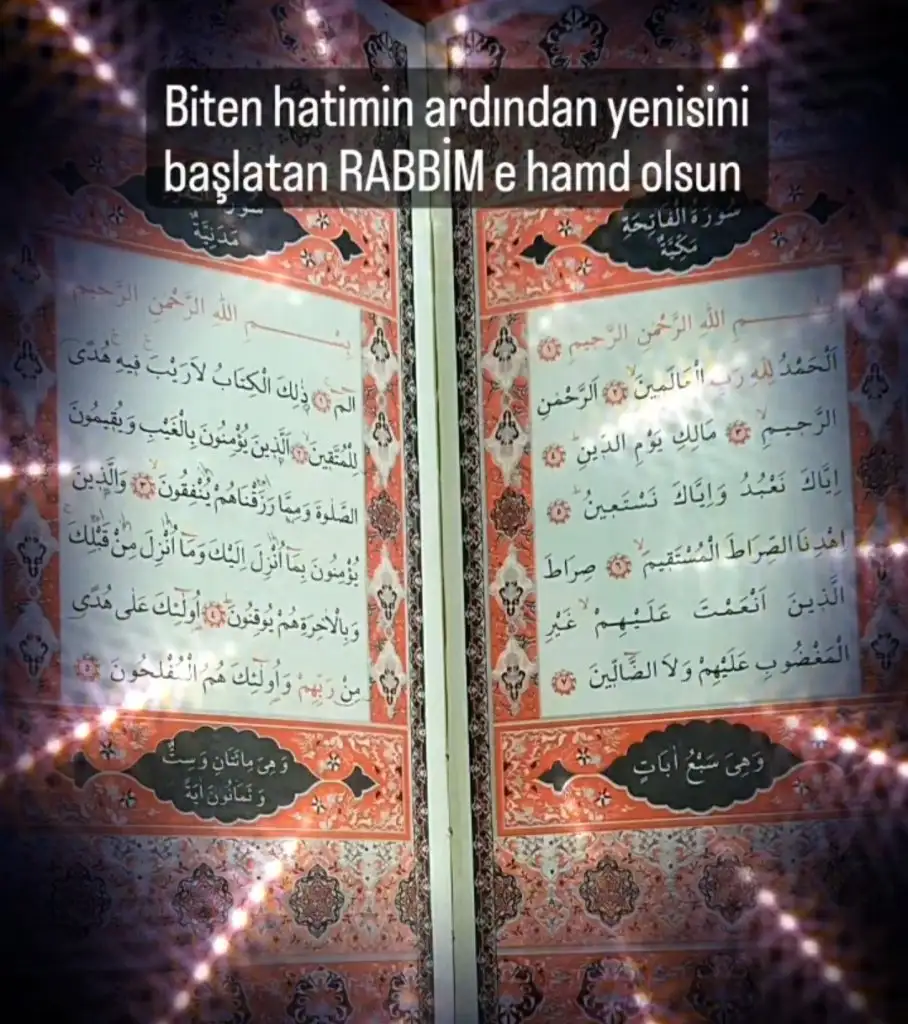 Biten hatimin ardından yenisini
başlatan RABBİM e hamd olsun
سُورَةُ الْفَاتِحَةِ
مَكِّيَّةٌ
بِسْــــــمِ اللهِ الرَّحْمٰنِ الرَّحِيمِ ١
اَلْحَمْدُ لِلّٰهِ رَبِّ الْعَالَمِينَ ٢ اَلرَّحْمٰنِ
الرَّحِيمِ ٣ مَالِكِ يَوْمِ الدّ۪ينِ ٤
اِيَّاكَ نَعْبُدُ وَاِيَّاكَ نَسْتَعِينُ ٥
اِهْدِنَا الصِّرَاطَ الْمُسْتَقِيمَ ٦ صِرَاطَ
الَّذِينَ اَنْعَمْتَ عَلَيْهِمْ غَيْرِ
الْمَغْضُوبِ عَلَيْهِمْ وَلَا الضَّالِّينَ ٧
وَهِىَ سَبْعُ اٰيَاتٍ
مَدَنِيَّةٌ
بِسْــــــمِ اللهِ الرَّحْمٰنِ الرَّحِيمِ
الٓمٓ ١ ذٰلِكَ الْكِتَابُ لَا رَيْبَ فِيهِ هُدًى
لِلْمُتَّقِينَ ٢ اَلَّذِينَ يُؤْمِنُونَ بِالْغَيْبِ وَيُقِيمُونَ
الصَّلٰوةَ وَمِمَّا رَزَقْنَاهُمْ يُنْفِقُونَ ٣ وَالَّذِينَ
يُؤْمِنُونَ بِمَٓا اُنْزِلَ اِلَيْكَ وَمَٓا اُنْزِلَ مِنْ قَبْلِكَ
وَبِالْاٰخِرَةِ هُمْ يُوقِنُونَ ٤ اُولٰٓئِكَ عَلٰى هُدًى
مِنْ رَبِّهِمْ وَاُولٰٓئِكَ هُمُ الْمُفْلِحُونَ ٥
وَهِىَ مِائَتَانِ وَسِتٌّ
وَثَمَانُونَ اٰيَةً